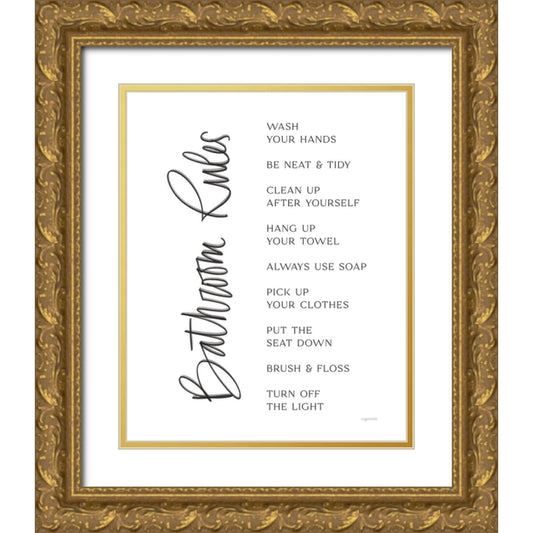 Bathroom Rules
WASH
YOUR HANDS
BE NEAT & TIDY
CLEAN UP
AFTER YOURSELF
HANG UP
YOUR TOWEL
ALWAYS USE SOAP
PICK UP
YOUR CLOTHES
PUT THE
SEAT DOWN
BRUSH & FLOSS
TURN OFF
THE LIGHT